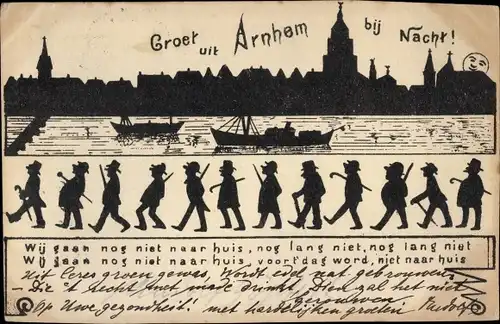 Groet uit Arnhem bij Nacht!
Wij gaan nog niet naar huis, nog lang niet, nog lang niet
Wij gaan nog niet naar huis, voort dag word, niet naar huis
Uit Ceres groen gewas, Wordt edel nat gebrouwen
- Die 't slecht met mode drinkt, Dien zal het niet
gerouwen
Op Uwe gezondheid! met hartelijken groeten Rudolf